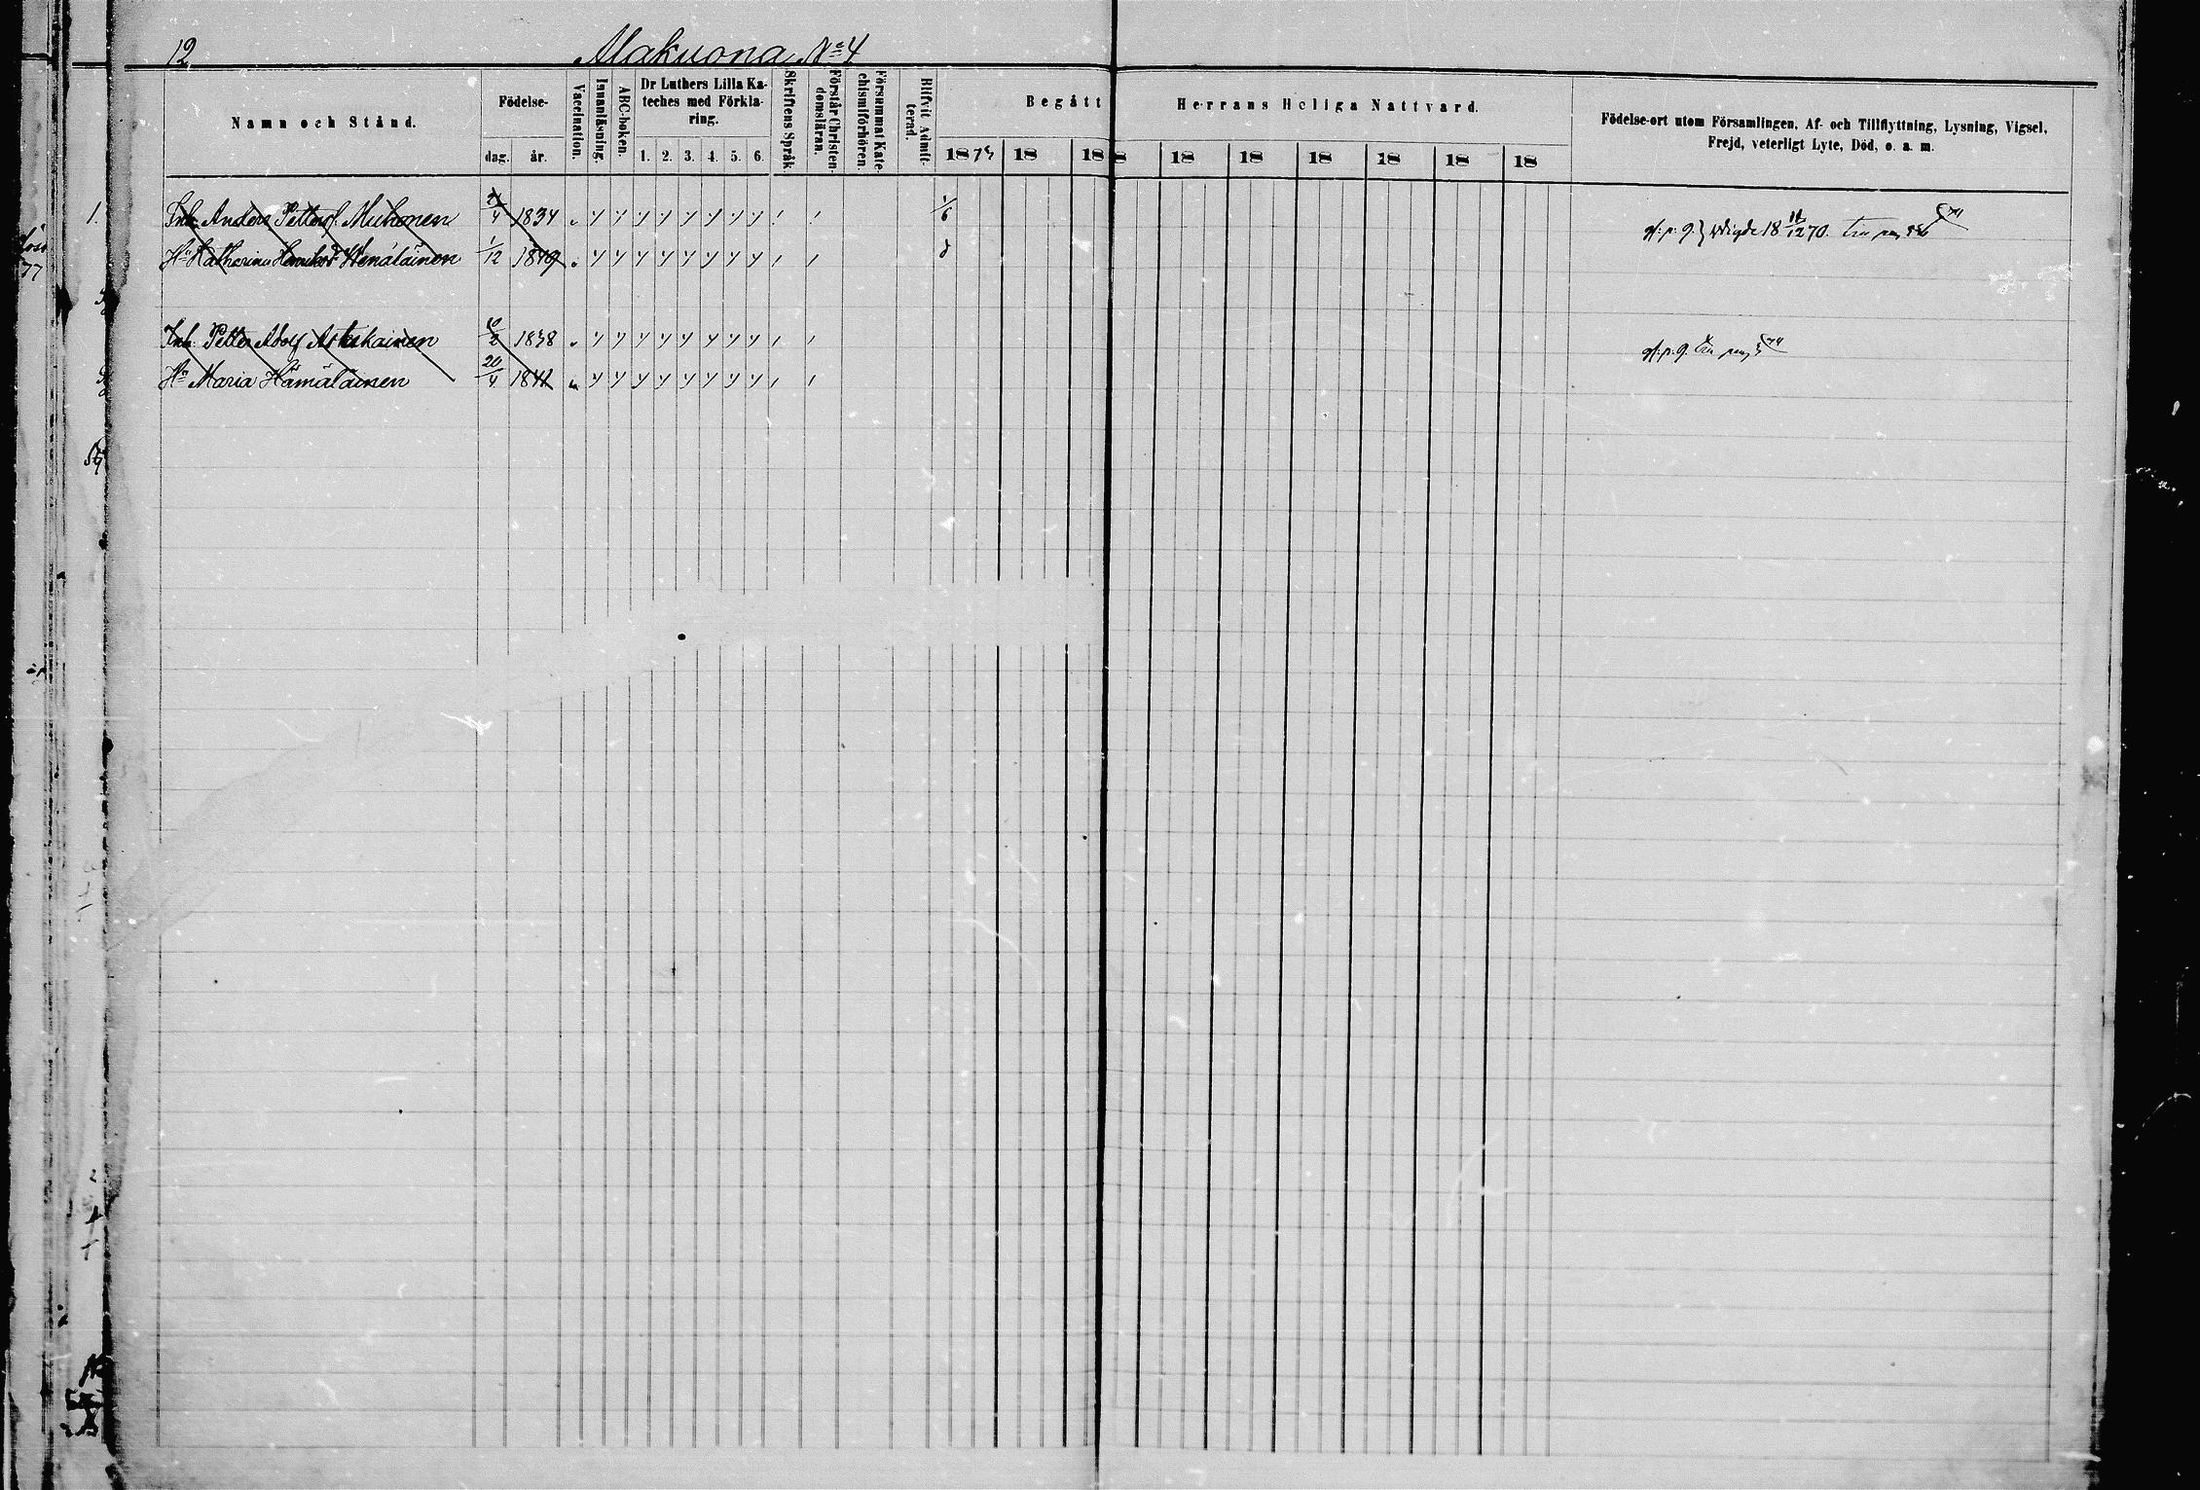 12
Alakuona No 4
Namn och Stånd.
Födelse-
dag. år.
Vaccination.
Innanläsning.
ABC-boken.
Dr Luthers Lilla Ka-
teches med Förkla-
ring.
1. 2. 3. 4. 5. 6.
Skriftens Språk.
Förstår Christen-
domsläran.
Försummat Kate-
chismiförhören.
Blifvit Admit-
terad.
Begått Herrans Heliga Nattvard.
18 18 18 18 18 18 18 18 18
Födelse-ort utom Församlingen, Af- och Tillflyttning, Lysning, Vigsel,
Frejd, veterligt Lyte, Död, o. a. m.
1. Inh. Anders Petterss. Muhonen 4 1834 1/6 p. 9. Wigde 18 11/12 70.
Hu Katharina Wenäläinen 1/12 1849
Inh. Petter Adolf 1838 p. 9.
Hu Maria Hämäläinen 20/4
77